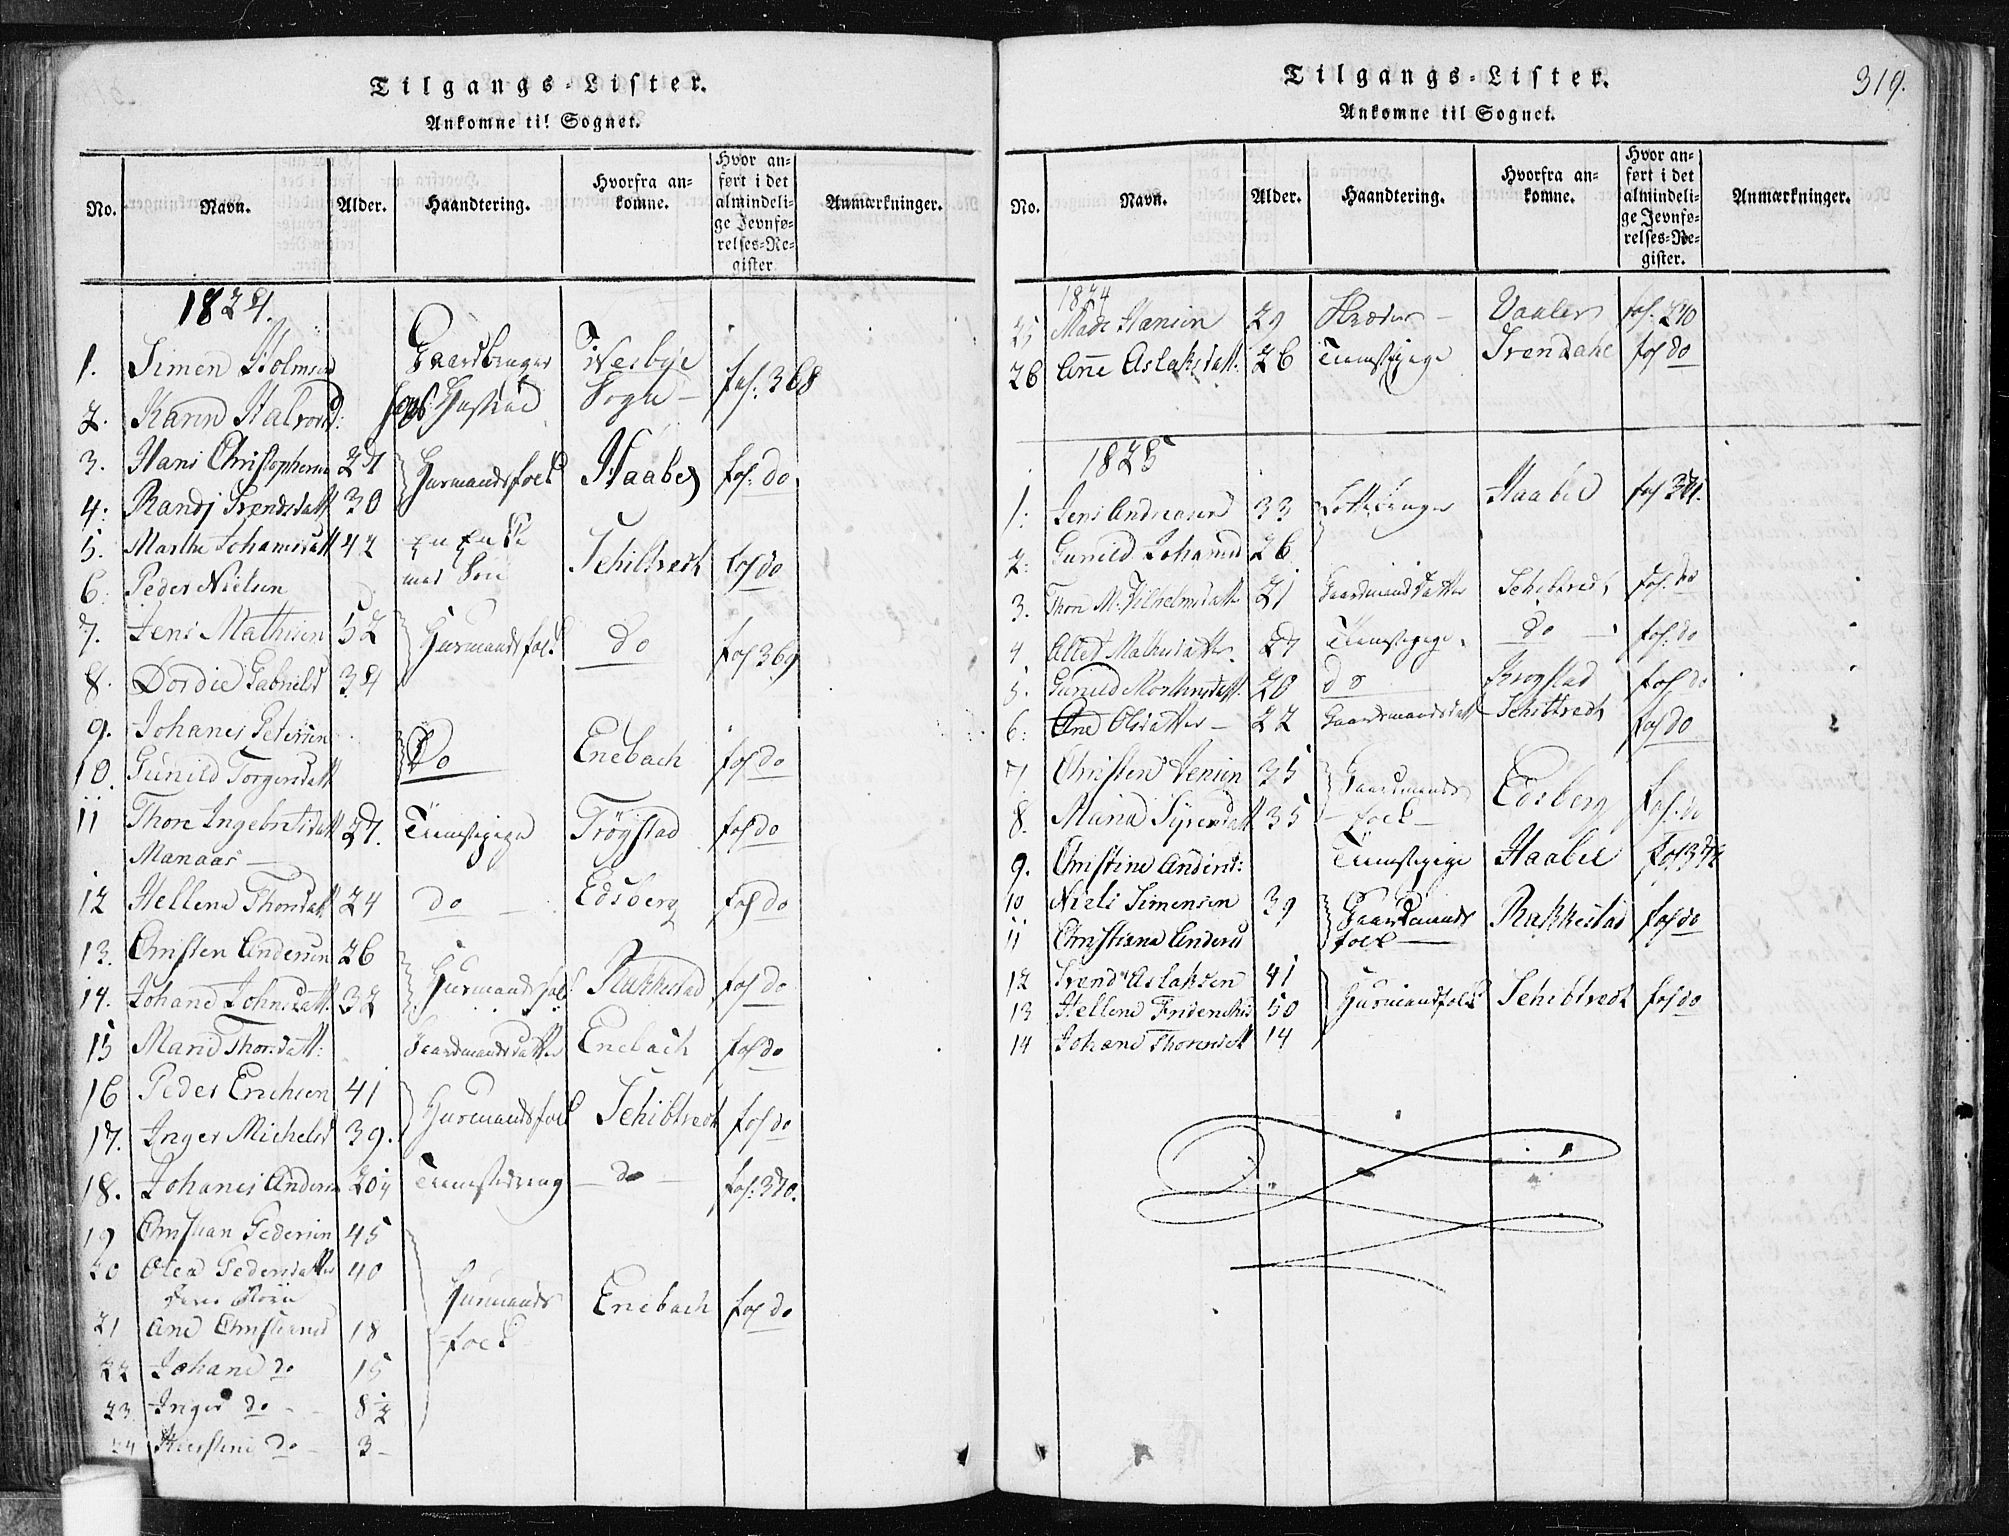 Tilgangs-Lister.
Ankomne til Sognet.
No. Navn. Alder. Haandtering. Hvorfra ankomne. Hvor anført i det almindelige Jevnførelses-Register. Anmærkninger.
1824.
1. Simen Holmsen Gaardbruger Nesbye
2. Karen Halvorsd: Hustrue Sogn fol. 368
3. Hans Christophersen 27 Huusmandsfolk Haabøl fol. do
4. Randj Svendsdatt 30
5. Marthe Johansdatt 42 En Enke Schibtvedt fol do
6. Peder Nielsen med Søn
7. Jens Mathisen 52 Huusmandsfolk do fol 369
8. Dordie Gabrielsd 34
9. Johanes Petersen Do Enebach fol do
10. Gunild Torgersdatt
11 Thore Ingebretsdatt 27. Tienestepige Trøgstad fol do
Manaas
12 Hellene Thorsdatt 24 do Edsberg fol do
13. Christen Andersen 26 Huusmandsfolk Rakkestad fol do
14. Johane Johnsdatt 32
15 Maria Thorsdatt: Gaardmandsdatter Enebach fol do
16 Peder Erichsen 41 Huusmandsfolk Schibtvedt fol do
17. Inger Michelsd 39.
18. Johanes Andersen 20 Tienestedreng do fol. 370.
19 Christian Pedersen 45 Huusmandsfolk Enebach fol do
20 Olea Pedersdatter 40
Deres Børn
21 Ane Christiansd 18
22 Johane do 15
23 Inger do 8½
24 Kirstine do 3
Tilgangs-Lister. 319.
Ankomne til Sognet.
No. Navn. Alder. Haandtering. Hvorfra ankomne. Hvor anført i det almindelige Jevnførelses-Register. Anmærkninger.
1824
25 Mads Hansen 29 Skræder Vaaler fol. 370
26 Ane Aslaksdatt. 26 Tienestepige Svendahl fol do
1825
1. Jens Andreasen 33 Haabøl fol 371.
2. Gunild Johansd 26
3. Thon M. Vilhelmsdatter 21 Gaardmandsdatter Schibtvedt fol. do
4 Allet Mathisdatter 27 Tienestepige do fol. do
5. Gunild Mortensdatt. 20 do Krogstad fol do
6. Ane Olsdatter 22 Gaardmandsdatt Schibtvedt fol do
7. Christen Jensen 35 Gaardmandsfolk Edsberg fol. do
8. Maria Syversdatt 35
9. Christine Andersd: Tienestepige Haabøl fol 372
10 Niels Simensen 39 Gaardmandsfolk Rakkestad fol do
11 Christiane Andersd
12 Svend Aslaksen 41 Huusmandsfolk Schibtvedt fol do
13 Hellene Friderichsd 50
14 Johane Thoresdatt 14